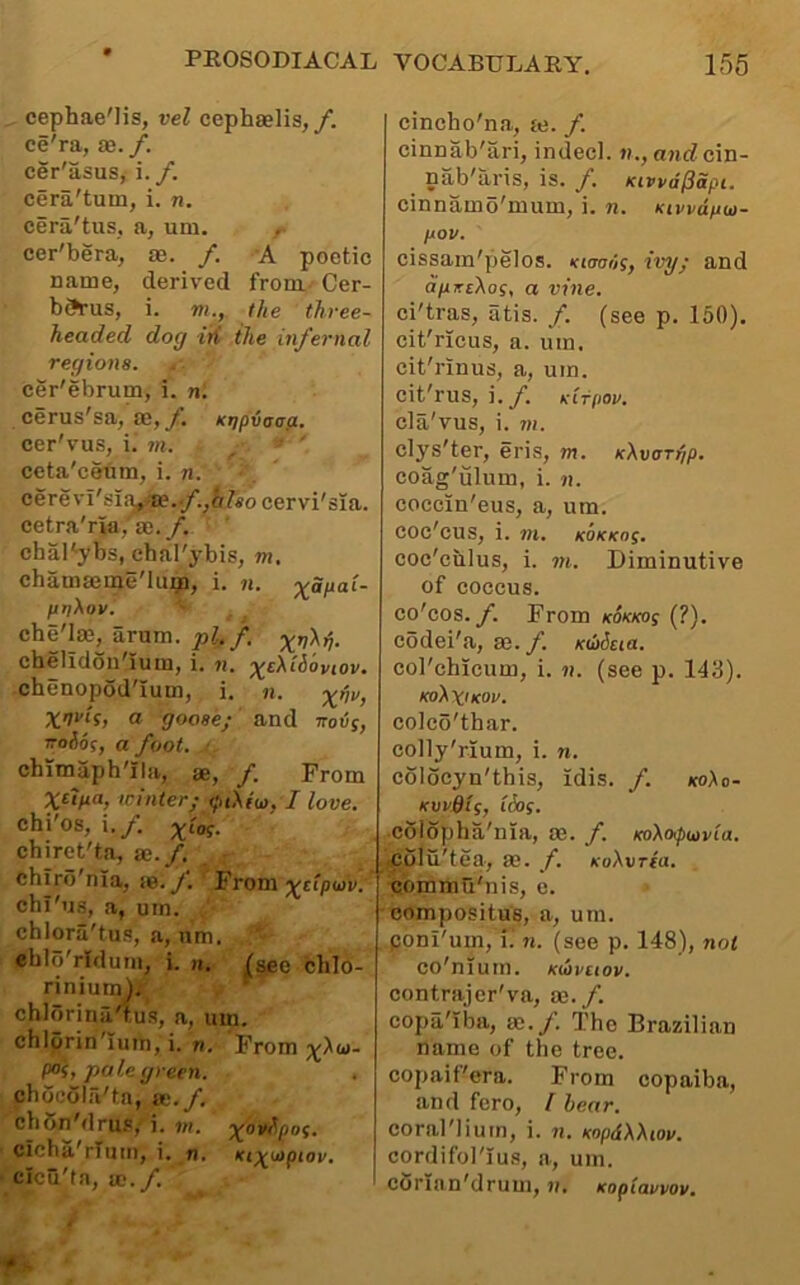 PROSODIACAL VOCABULARY. 155
cephae'lis, vel cephælis, f.
cē'ra, æ. f.
cĕr'ăsus, i. f.
cērā'tum, i. n.
cērā'tus, a, um.
cer'bĕra, æ. f. A poetic
name, derived from Cer-
bĕrus, i. m., the three-
headed dog in the infernal
regions.
cĕr'ĕbrum, i. n.
cērus'sa, æ, f. κηρύσσα.
cer'vus, i. m.
ceta'cĕum, i. n.
cĕrĕvī'sĭa, æ. f., also cervi'sĭa.
cetra'rĭa, æ. f.
chăl'ybs, chal'ybis, m.
chămæmē'lum, i. n. χᾰμαί-
μηλον.
chē'læ, ārum. pl. f. χηλή.
chĕlĭdŏn'ĭum, i. n. χελῑδόνιον.
chēnopŏd'ĭum, i. n. χήν,
χηνίς, a goose; and πούς,
ποδός, a foot.
chīmăph'ĭla, æ, f. From
χεῖμα, winter; φιλέω, I love.
chī'os, i. f. χίος.
chiret'ta, æ. f.
chīrō'nĭa, æ. f. From χείρων.
chī'us, a, um.
chlorā'tus, a, um.
chlō'rĭdum, i. n. (see chlo-
rinium).
chlōrinā'tus, a, um.
chlōrin'ĭum, i. n. From χλω-
ρος, pale green.
chŏcŏlā'ta, æ. f.
chŏn'drus, i. m. χονδρος.
cĭchā'rĭum, i. n. κιχωριον.
cĭcū'ta, æ. f.
cincho'na, æ. f.
cinnăb'ări, indecl. n., and cin-
năb'ăris, is. f. κιννάβᾰρι.
cinnămō'mum, i. n. κιννάμω-
μον.
cissam'pĕlos. κισσός, ivy; and
ἄμπελος, a vine.
ci'tras, ātis. f. (see p. 150).
cit'rĭcus, a. um.
cit'rĭnus, a, um.
cit'rus, i. f. κίτρον.
clā'vus, i. m.
clys'ter, ēris, m. κλυστήρ.
coăg'ŭlum, i. n.
coccĭn'eus, a, um.
coc'cus, i. m. κόκκος.
coc'cŭlus, i. m. Diminutive
of coccus.
co'cos. f. From κόκκος (?).
cōdei'a, æ. f. κώδεια.
col'chĭcum, i. n. (see p. 143).
κολχικον.
colcō'thar.
colly'rĭum, i. n.
cŏlŏcyn'this, ĭdis. f. κολο-
κυνθίς, ίδος.
cŏlŏphā'nĭa, æ. f. κολοφωνία.
cŏlū'tĕa, æ. f. κολυτέα.
commū'nis, e.
compositus, a, um.
conī'um, i. n. (see p. 148), not
co'nĭum. κώνειον.
contrajer'va, æ. f.
copā'ĭba, æ. f. The Brazilian
name of the tree.
copaif'era. From copaiba,
and fero, I bear.
coral'lium, i. n. κοράλλιον.
cordifol'ĭus, a, um.
cŏrĭan'drum, n. κορίαννον.